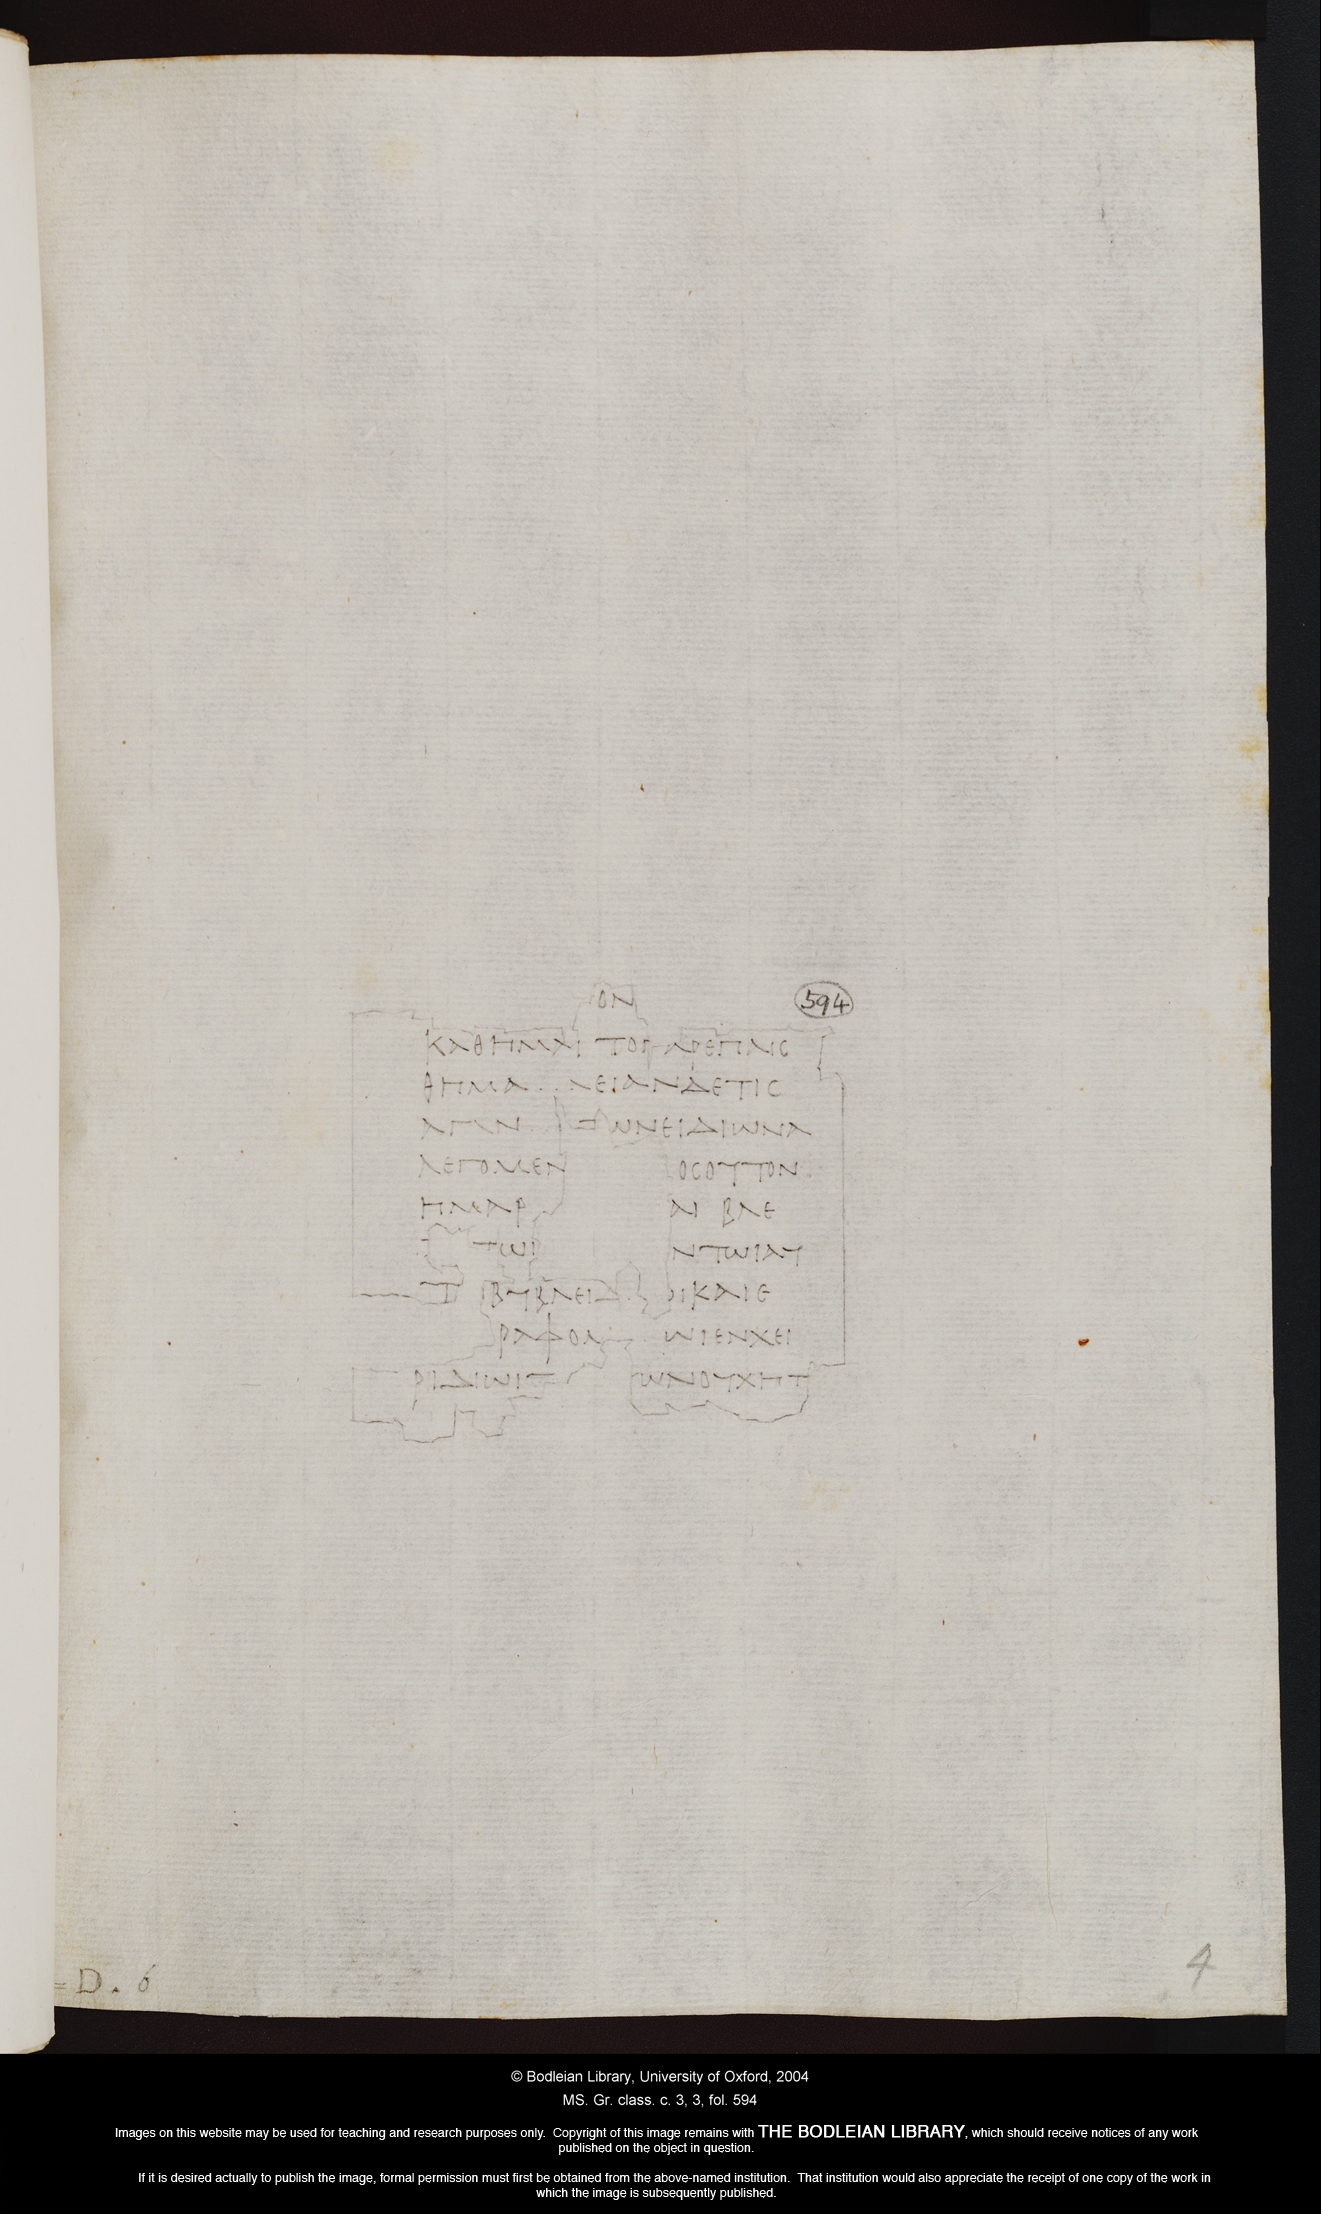 ΟΝ
594
ΚΑΘΗΜΑΙ ΤΟΓΑΡΕΠΑΙC
ΘΗΜΑ . . ΛΕΙΑΝΔΕΤΙC
ΩΝΕΙΔΙΩΝΑ
ΛΕΓΟΜΕΝ ΟCΟΥΤΟΝ
ΗΜΑΡ ΑΙ ΒΛΕ
ΤΩΙ ΝΤΩΙΑΥ
ΒΥΒΛΕΙΔ ΙΚΑΙΕ
ΡΑΦΟΛ ΩΙΕΝΧΕΙ
ΡΙΔΙΩΙΤ ΩΝΟΥΧΗΤ
= D. 6
4
© Bodleian Library, University of Oxford, 2004
MS. Gr. class. c. 3, 3, fol. 594
Images on this website may be used for teaching and research purposes only. Copyright of this image remains with THE BODLEIAN LIBRARY, which should receive notices of any work
published on the object in question.
If it is desired actually to publish the image, formal permission must first be obtained from the above-named institution. That institution would also appreciate the receipt of one copy of the work in
which the image is subsequently published.